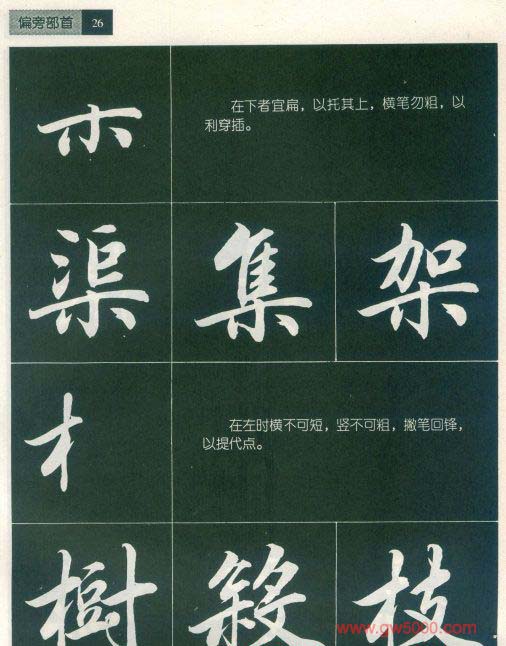 偏旁部首 26
木
在下者宜扁，以托其上，横笔勿粗，以
利穿插。
渠 集 架
木
在左时横不可短，竖不可粗，撇笔回锋，
以提代点。
樹 枝
www.gw5000.com